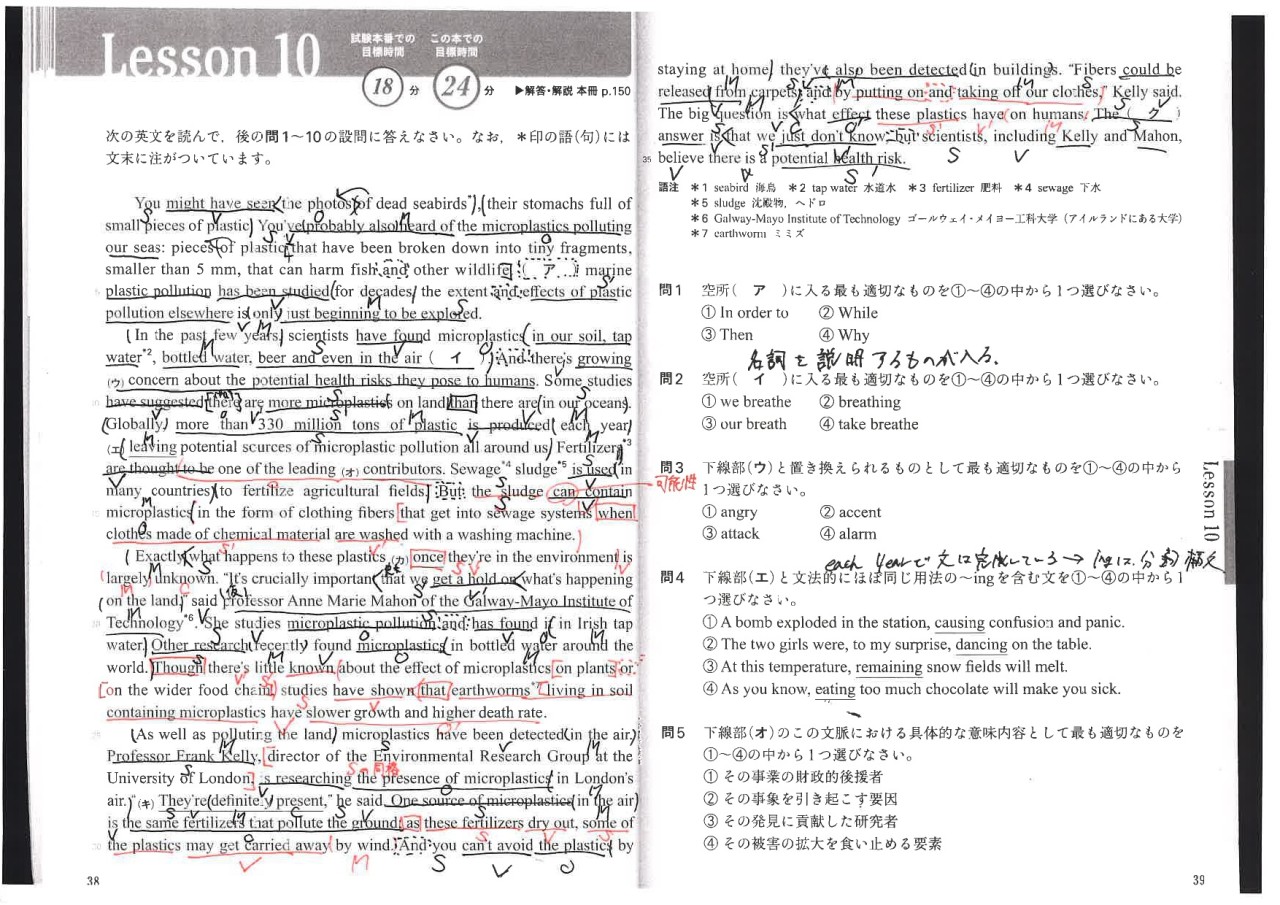 Lesson 10
試験本番での目標時間
18 分
この本での目標時間
24 分
▶解答・解説 本冊 p.150
次の英文を読んで，後の問1～10の設問に答えなさい。なお，＊印の語(句)には
文末に注がついています。
You might have seen the photos of dead seabirds*1, their stomachs full of
small pieces of plastic. You've probably also heard of the microplastics polluting
our seas: pieces of plastic that have been broken down into tiny fragments,
smaller than 5 mm, that can harm fish and other wildlife. ( ア ) marine
plastic pollution has been studied for decades, the extent and effects of plastic
pollution elsewhere is only just beginning to be explored.
In the past few years, scientists have found microplastics in our soil, tap
water*2, bottled water, beer and even in the air ( イ ). And there's growing
(ウ) concern about the potential health risks they pose to humans. Some studies
have suggested there are more microplastics on land than there are in our oceans.
Globally, more than 330 million tons of plastic is produced each year,
(エ) leaving potential scources of microplastic pollution all around us. Fertilizers*3
are thought to be one of the leading (オ) contributors. Sewage*4 sludge*5 is used in
many countries to fertilize agricultural fields. But the sludge can contain
可能性
microplastics in the form of clothing fibers that get into sewage systems when
clothes made of chemical material are washed with a washing machine.
Exactly what happens to these plastics (カ) once they're in the environment is
largely unknown. "It's crucially important that we get a hold on what's happening
on the land," said Professor Anne Marie Mahon of the Galway-Mayo Institute of
Technology*6. She studies microplastic pollution and has found it in Irish tap
water. Other research recently found microplastics in bottled water around the
world. Though there's little known about the effect of microplastics on plants or
on the wider food chain, studies have shown that earthworms*7 living in soil
containing microplastics have slower growth and higher death rate.
As well as polluting the land, microplastics have been detected in the air.
Professor Frank Kelly, director of the Environmental Research Group at the
University of London, is researching the presence of microplastics in London's
Sの同格
air. "(キ) They're definitely present," he said. One source of microplastics in the air
is the same fertilizers that pollute the ground: as these fertilizers dry out, some of
the plastics may get carried away by wind. And you can't avoid the plastics by
38
staying at home; they've also been detected in buildings. "Fibers could be
released from carpets and by putting on and taking off our clothes," Kelly said.
The big question is what effect these plastics have on humans. The ( ク )
answer is that we just don't know, but scientists, including Kelly and Mahon,
35 believe there is a potential health risk.
語注 ＊1 seabird 海鳥 ＊2 tap water 水道水 ＊3 fertilizer 肥料 ＊4 sewage 下水
＊5 sludge 沈殿物，ヘドロ
＊6 Galway-Mayo Institute of Technology ゴールウェイ・メイヨー工科大学（アイルランドにある大学）
＊7 earthworm ミミズ
問1 空所( ア )に入る最も適切なものを①～④の中から1つ選びなさい。
① In order to ② While
③ Then ④ Why
名詞を説明するものが入る.
問2 空所( イ )に入る最も適切なものを①～④の中から1つ選びなさい。
① we breathe ② breathing
③ our breath ④ take breathe
問3 下線部(ウ)と置き換えられるものとして最も適切なものを①～④の中から
1つ選びなさい。
① angry ② accent
③ attack ④ alarm
each yearで文は完成している→ingは、分詞構文
問4 下線部(エ)と文法的にほぼ同じ用法の～ingを含む文を①～④の中から1
つ選びなさい。
① A bomb exploded in the station, causing confusion and panic.
② The two girls were, to my surprise, dancing on the table.
③ At this temperature, remaining snow fields will melt.
④ As you know, eating too much chocolate will make you sick.
問5 下線部(オ)のこの文脈における具体的な意味内容として最も適切なものを
①～④の中から1つ選びなさい。
① その事業の財政的後援者
② その事象を引き起こす要因
③ その発見に貢献した研究者
④ その被害の拡大を食い止める要素
Lesson 10
39